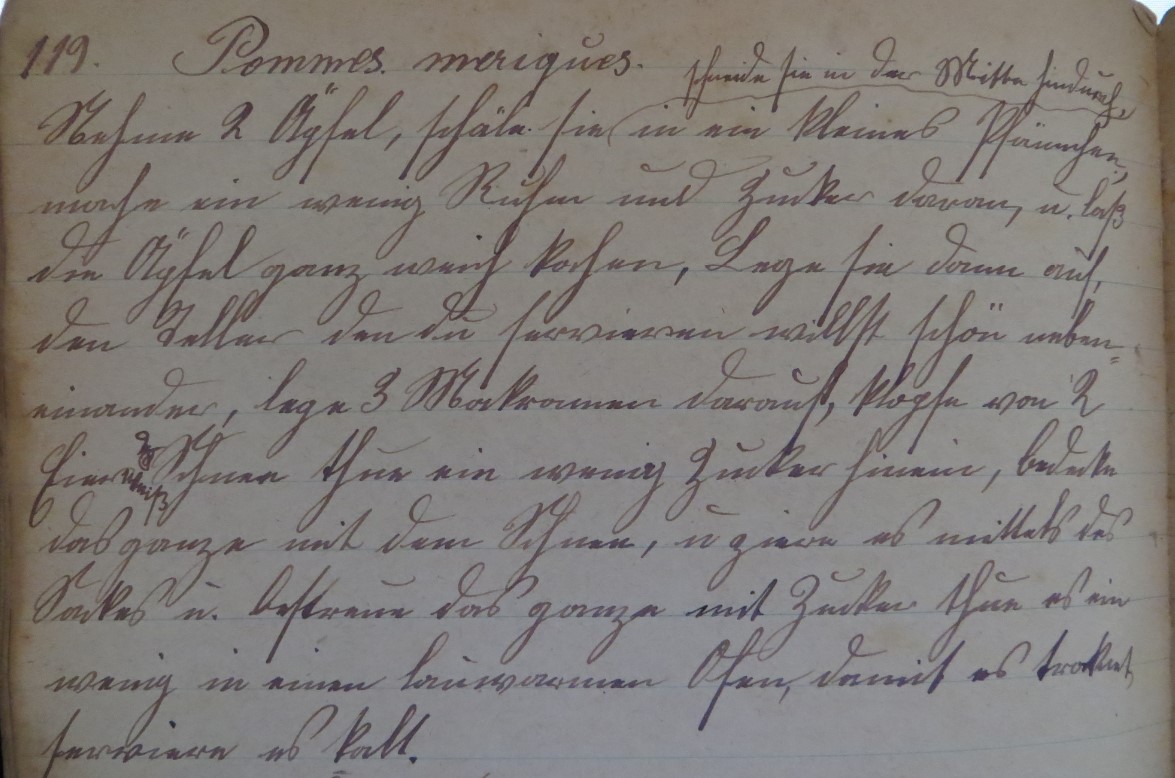 119. Pommes meriques.
schneide sie in der Mitte hindurch,
Nehme 2 Äpfel, schäle sie in ein kleines Pfännchen,
mache ein wenig Ruhm und Zucker daran, u. laß
die Äpfel ganz weich kochen, Lege sie dann auf,
den Teller den du servieren willst schön neben=
einander, lege 3 Makronen darauf, klopfe von 2
Eierweiß Schnee thue ein wenig Zucker hinein, bedecke
das ganze mit dem Schnee, u ziere es mittels des
Sackes u. bestreue das ganze mit Zucker thue es ein
wenig in einen lauwarmen Ofen, damit es trocknet,
serviere es kalt.